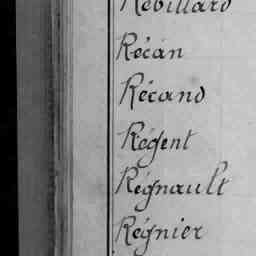 Rébillard
Récan
Récand
Régent
Régnault
Régnier